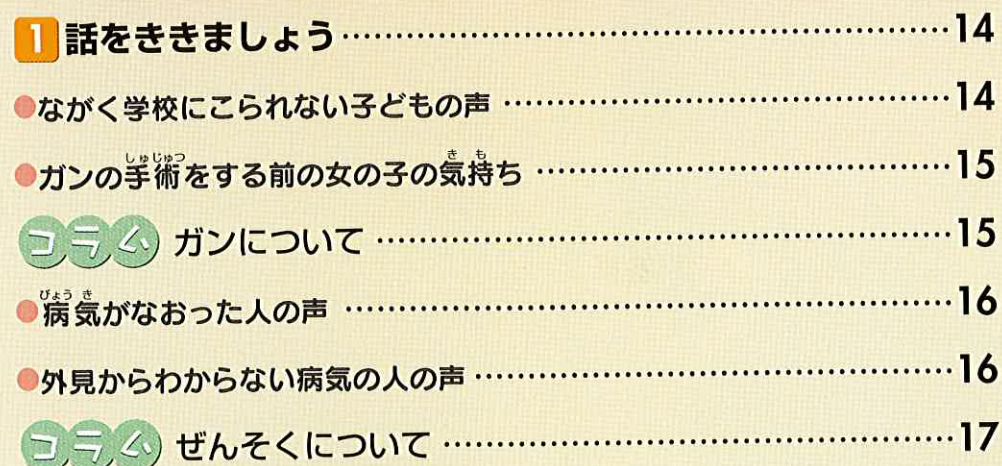 1 話をききましょう……………………………………………………14
●ながく学校にこられない子どもの声……………………………………14
●ガンの手術をする前の女の子の気持ち…………………………………15
しゅじゅつ き も
コラム ガンについて………………………………………………15
●病気がなおった人の声…………………………………………………16
びょう き
●外見からわからない病気の人の声………………………………………16
コラム ぜんそくについて…………………………………………17